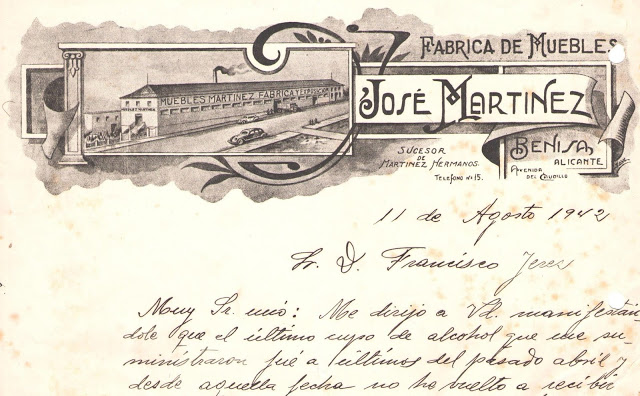 FABRICA DE MUEBLES
JOSÉ MARTINEZ
MUEBLES MARTINEZ FÁBRICA Y EXPOSICIÓN
SUCESOR
DE
MARTINEZ HERMANOS.
TELEFONO Nº 15.
BENISA,
ALICANTE
AVENIDA
DEL CAUDILLO
11 de Agosto 1942
Sr. D. Francisco Jerez
Muy Sr. mío: Me dirijo a Vd. manifestán-
dole que el último cupo de alcohol que me su-
ministraron fué a últimos del pasado abril y
desde aquella fecha no he vuelto a recibir